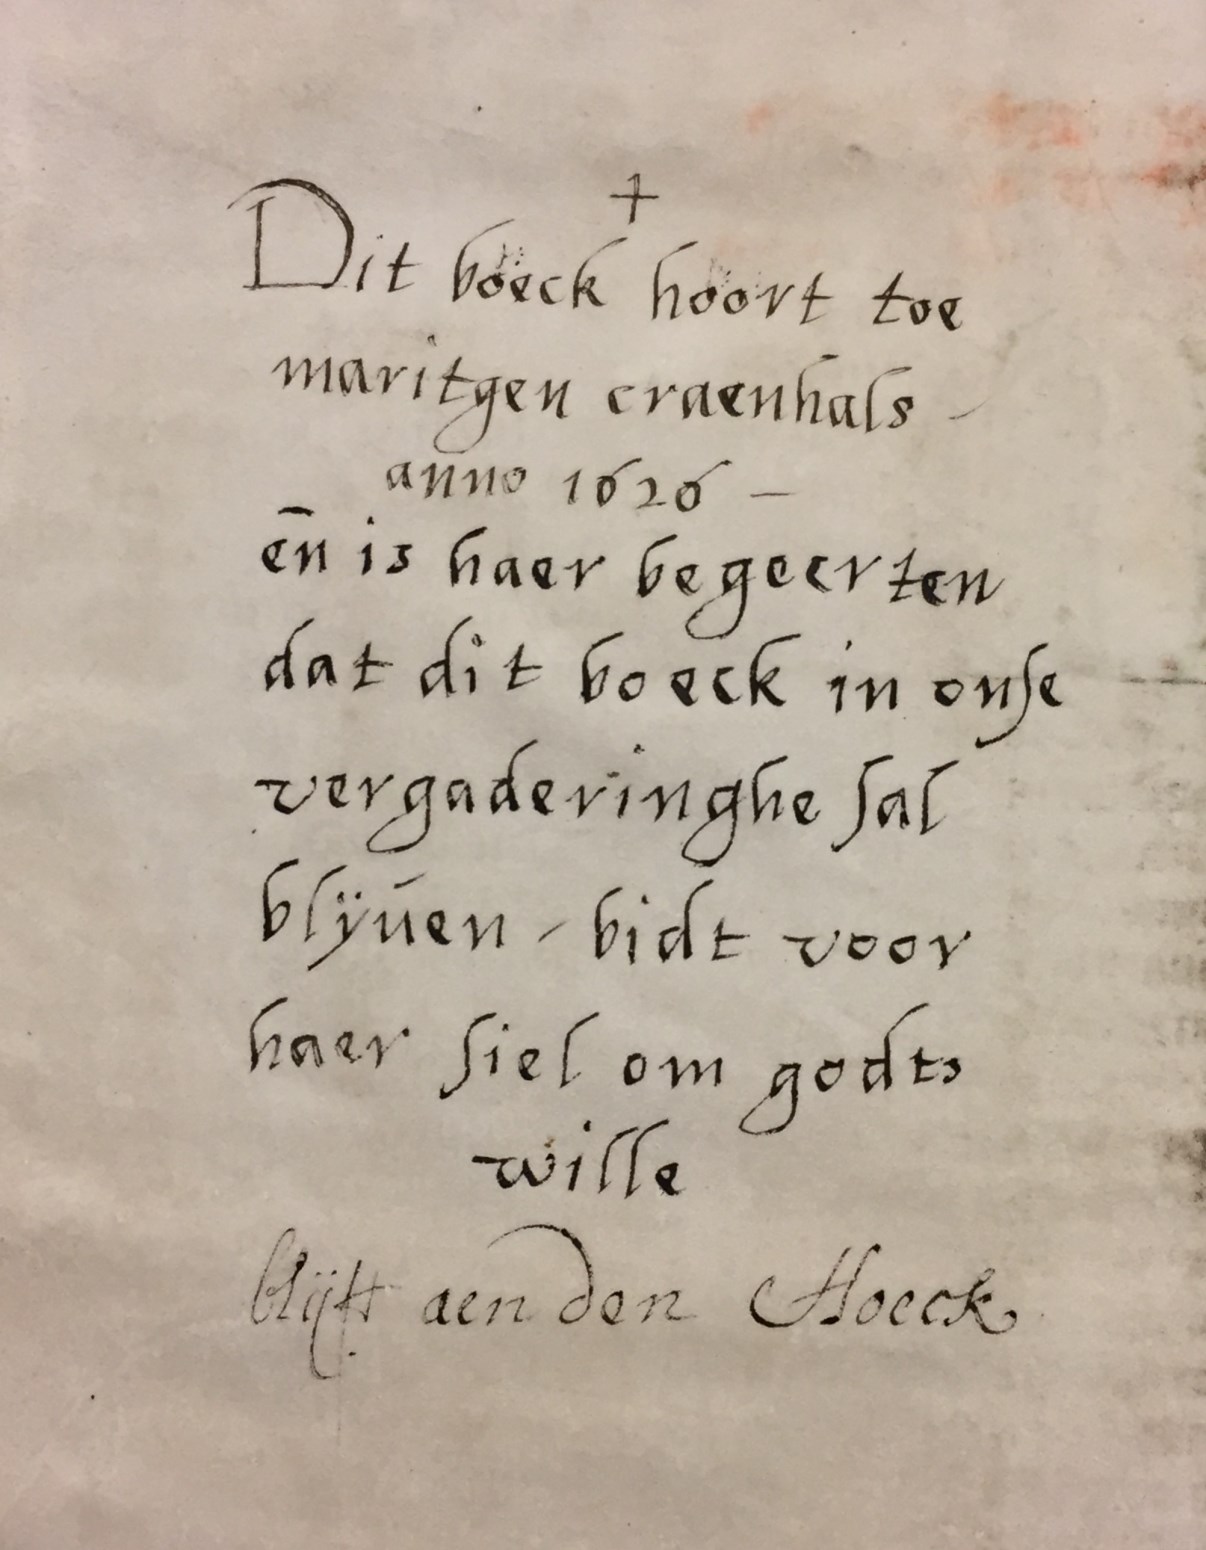 +
Dit boeck hoort toe
maritgen craenhals -
anno 1626 -
en̄ is haer begeerten
dat dit boeck in onse
vergaderinghe sal
blÿūen - bidt voor
haer siel om godts
wille
blijft aen den Hoeck